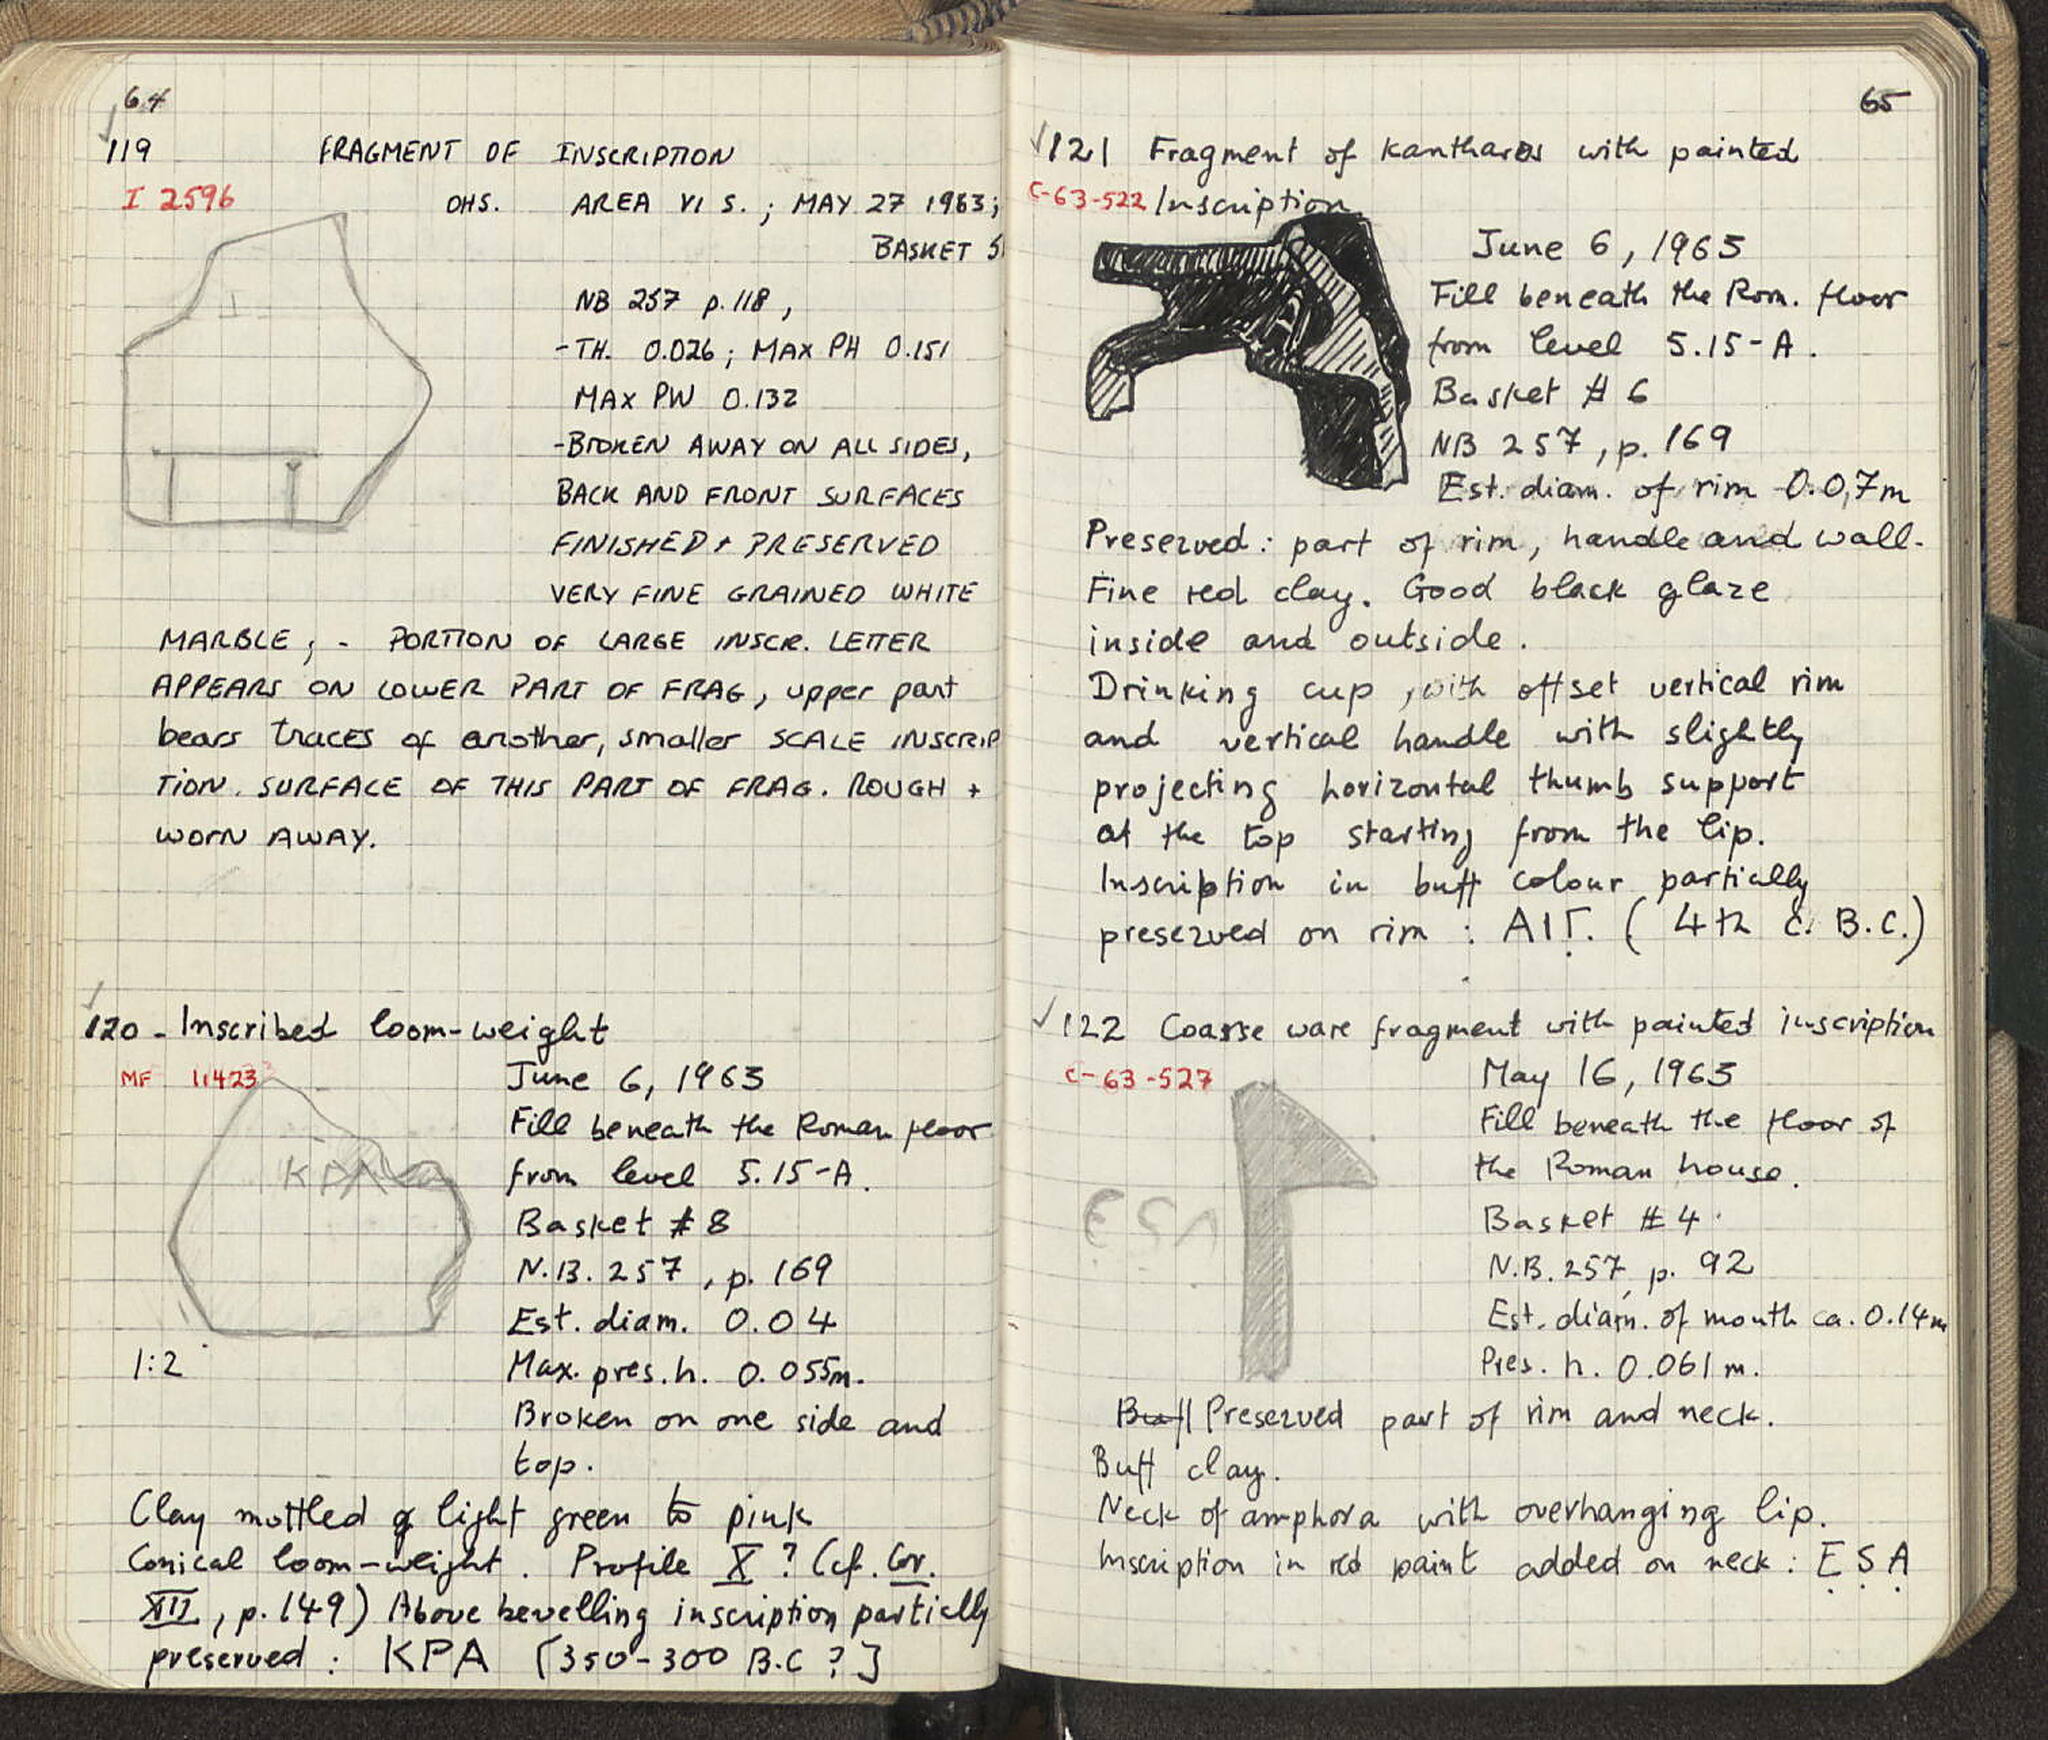 64
119 FRAGMENT OF INSCRIPTION
I 2596 OHS. AREA VI S.; MAY 27 1963;
BASKET 5
I
NB 257 p. 118,
- TH. 0.026; MAX PH 0.151
MAX PW 0.132
- BROKEN AWAY ON ALL SIDES,
BACK AND FRONT SURFACES
FINISHED + PRESERVED
VERY FINE GRAINED WHITE
MARBLE; - PORTION OF LARGE INSCR. LETTER
APPEARS ON LOWER PART OF FRAG, upper part
bears traces of another, smaller SCALE INSCRIP
TION. SURFACE OF THIS PART OF FRAG. ROUGH +
WORN AWAY.
120 - Inscribed loom-weight
MF 11423
June 6, 1963
Fill beneath the Roman floor
from level 5.15-A.
KPA
Basket # 8
N.B. 257, p. 169
Est. diam. 0.04
1:2
Max. pres. h. 0.055m.
Broken on one side and
top.
Clay mottled of light green to pink
Conical loom-weight. Profile X ? (cf. Cor.
XII, p. 149) Above bevelling inscription partially
preserved: KPA [350-300 B.C ?]
65
121 Fragment of kantharos with painted
C-63-522 Inscription
June 6, 1963
Fill beneath the Rom. floor
from level 5.15-A.
Basket # 6
NB 257, p. 169
Est. diam. of rim 0.07m
Preserved: part of rim, handle and wall.
Fine red clay. Good black glaze
inside and outside.
Drinking cup, with offset vertical rim
and vertical handle with slightly
projecting horizontal thumb support
at the top starting from the lip.
Inscription in buff colour partially
preserved on rim: ΑΙΓ. (4th c. B.C.)
122 Coarse ware fragment with painted inscription
C-63-527
May 16, 1963
Fill beneath the floor of
the Roman house.
ESA
Basket # 4.
N.B. 257, p. 92
Est. diam. of mouth ca. 0.14m
Pres. h. 0.061 m.
Buff Preserved part of rim and neck.
Buff clay.
Neck of amphora with overhanging lip.
Inscription in red paint added on neck: ẸṢẠ